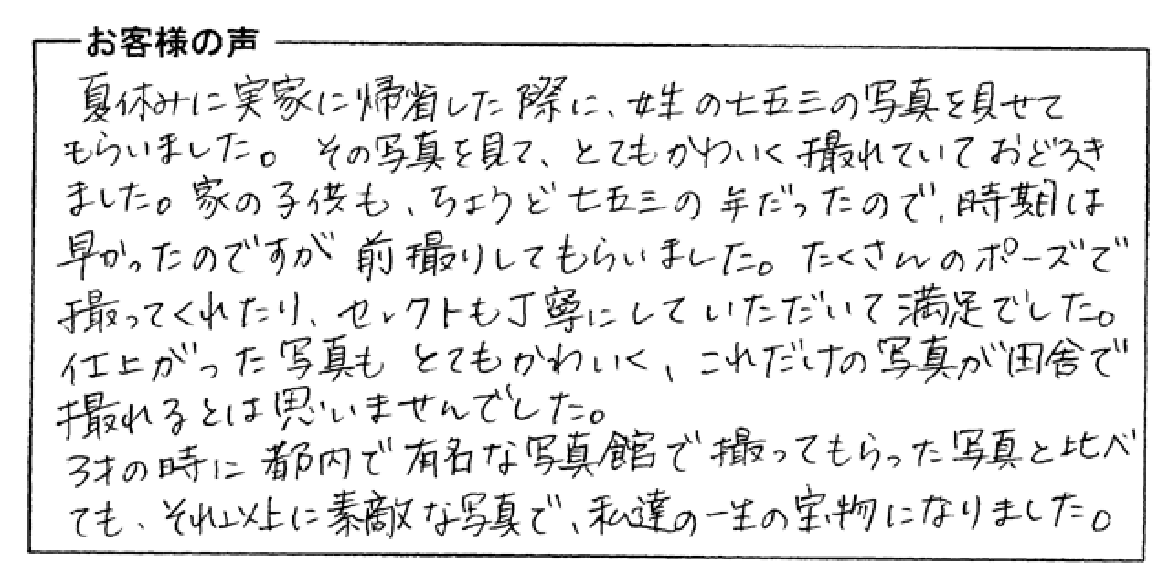 お客様の声
夏休みに実家に帰省した際に、姪の七五三の写真を見せて
もらいました。その写真を見て、とてもかわいく撮れていておどろき
ました。家の子供も、ちょうど七五三の年だったので、時期は
早かったのですが前撮りしてもらいました。たくさんのポーズで
撮ってくれたり、セレクトも丁寧にしていただいて満足でした。
仕上がった写真もとてもかわいく、これだけの写真が田舎で
撮れるとは思いませんでした。
3才の時に都内で有名な写真館で撮ってもらった写真と比べ
ても、それ以上に素敵な写真で、私達の一生の宝物になりました。